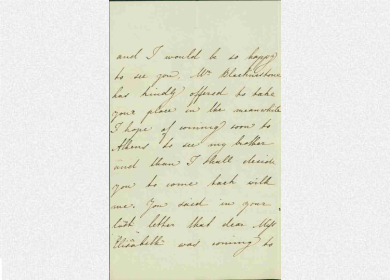 and I would be so happy
to see you. Mrs Blackinstone
has kindly offered to take
your place in the meanwhile
I hope of coming soon to
Athens to see my brother
and than I shall decide
you to come back with
me. You said in your
last letter that dear Miss
Elisabeth was coming to